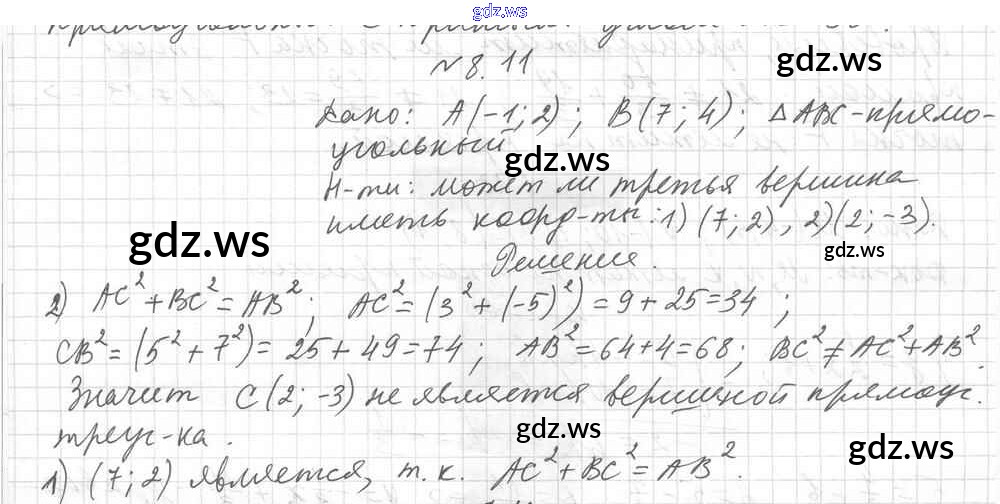 gdz.ws
№ 8.11
gdz.ws
Дано: A(-1; 2); B(7; 4); △ABC - прямо-
угольный
gdz.ws
Н-ти: может ли третья вершина
иметь коорд-ты: 1) (7; 2), 2) (2; -3).
gdz.ws
gdz.ws
Решение.
2) AC² + BC² = AB²; AC² = (3² + (-5)²) = 9 + 25 = 34;
CB² = (5² + 7²) = 25 + 49 = 74; AB² = 64 + 4 = 68; BC² ≠ AC² + AB²
Значит C(2; -3) не является вершиной прямоуг.
треуг-ка.
gdz.ws
gdz.ws
1) (7; 2) является, т.к. AC² + BC² = AB².
gdz.ws